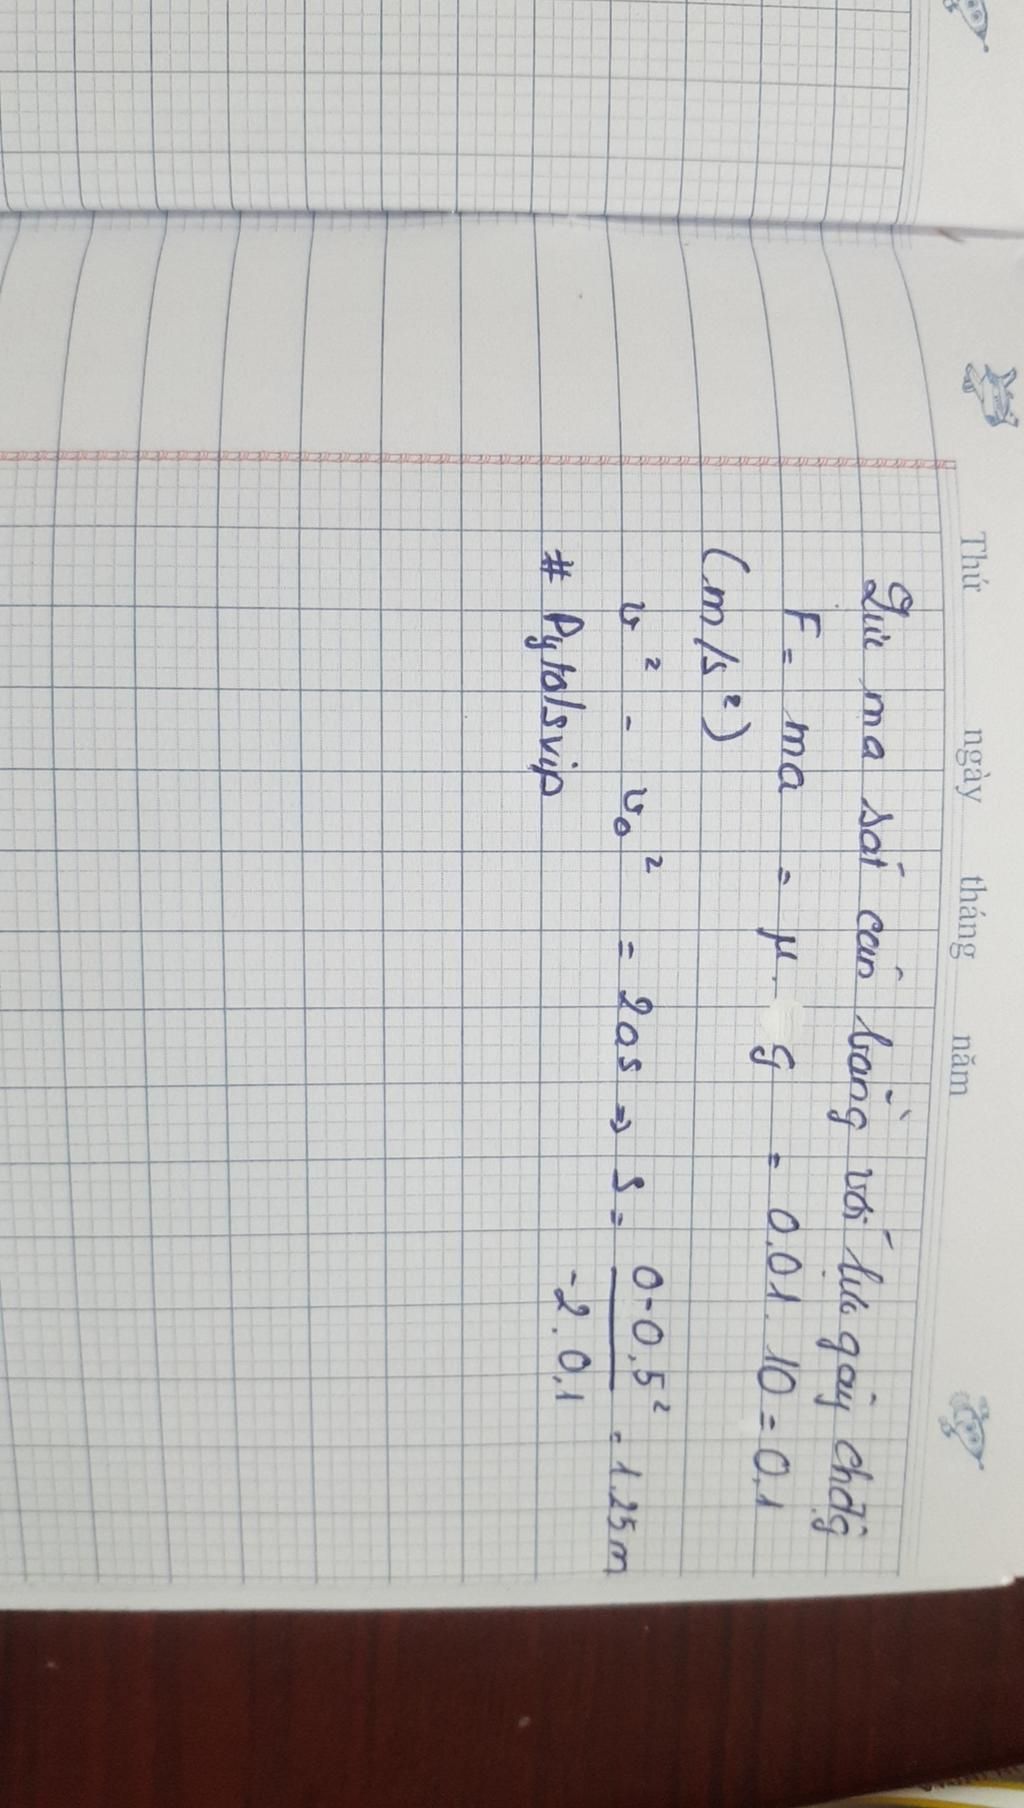 Thứ ngày tháng năm
Lực ma sát cân bằng với lực gây chđg
F = ma = μ. g = 0.01. 10 = 0,1
(m/s²)
v² - v₀² = 2as => s = (0-0,5²)/(-2.0,1) = 1.25m
# Pytalsvip